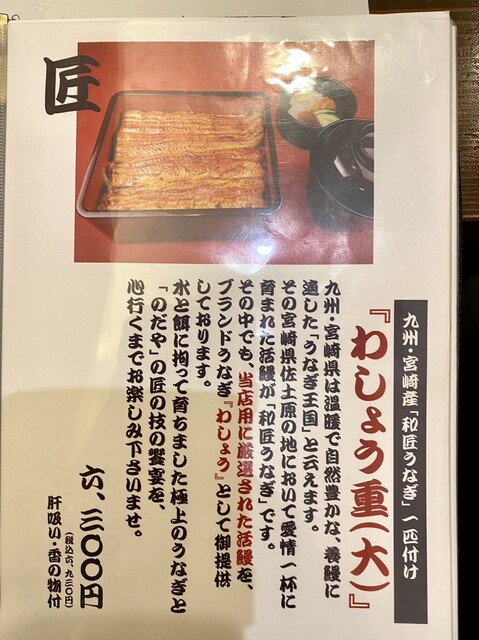 匠
九州・宮崎産「和匠うなぎ」一匹付け
『わしょう重(大)』
九州・宮崎県は温暖で自然豊かな、養鰻に
適した「うなぎ王国」と云えます。
その宮崎県佐土原の地において愛情一杯に
育まれた活鰻が「和匠うなぎ」です。
その中でも、当店用に厳選された活鰻を、
ブランドうなぎ『わしょう』として御提供
しております。
水と餌に拘って育ちました極上のうなぎと
「のだや」の匠の技の饗宴を、
心行くまでお楽しみ下さいませ。
六、三〇〇円
(税込六、九三〇円)
肝吸い・香の物付